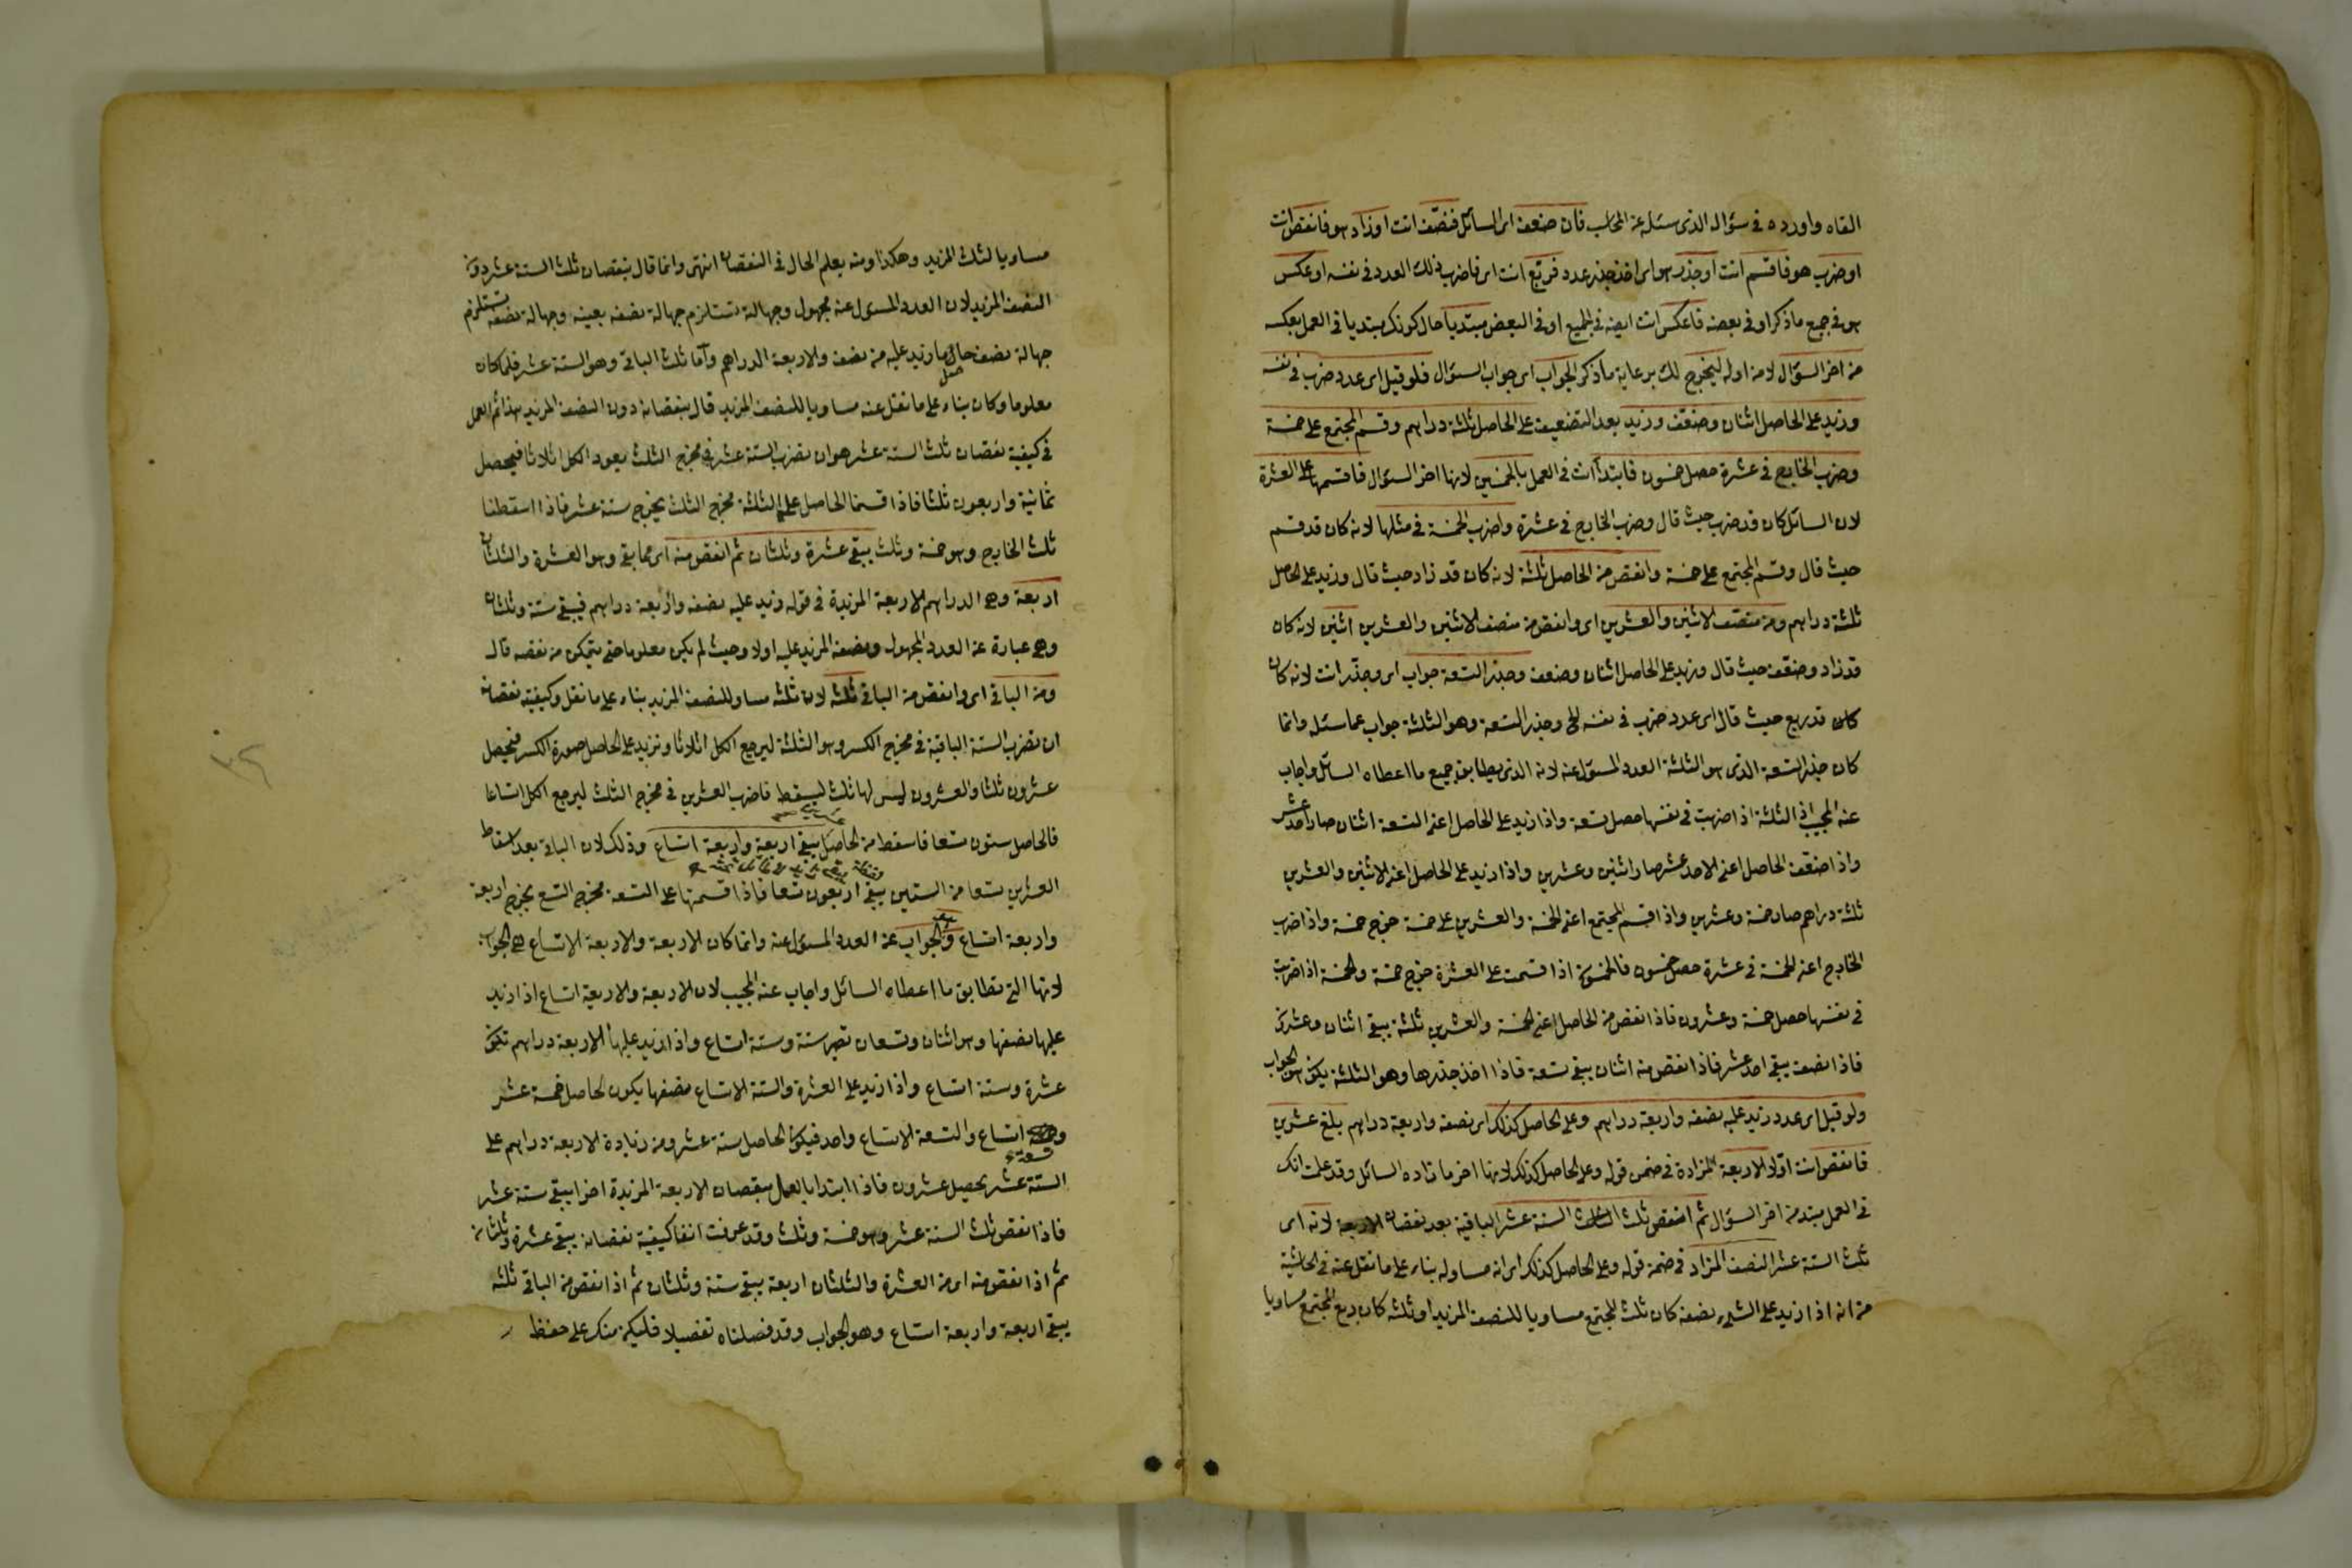 القاه واورده في سؤاله الذي سئله عن المحاسب فان ضعف اي السائل فنصّف انت او زاد هو فانقص انت
او ضرب هو فاقسم انت او جذر هو اي اخذ جذر عدد فربّع انت اي فاضرب ذلك العدد في نفسه او عكس
هو في جميع ما ذكر او في بعضه فاعكس انت ايضه في الجميع او في البعض مبتديا حال كونك مبتديا في العمل بعكسه
من اخر السؤال لا من اوله ليخرج لك برعاية ما ذكر الجواب اي جواب السؤال فلو قيل اي عدد ضرب في نفسه
وزيد على الحاصل اثنان وضعّف وزيد بعد التضعيف على الحاصل ثلثة دراهم وقسم المجتمع على خمسة
وضرب الخارج في عشرة حصل خمسون فابتدأ انت في العمل بالخمسين لانها اخر السؤال فاقسمها على العشرة
لان السائل كان قد ضرب حيث قال وضرب الخارج في عشرة واضرب الخمسة في مثلها لانه كان قد قسم
حيث قال وقسم المجتمع على خمسة وانقص من الحاصل ثلثة لانه كان قد زاد حيث قال وزيد على الحاصل
ثلثة دراهم ومن منصّف الاثنين والعشرين اي وانقص من منصف الاثنين والعشرين اثنين لانه كان
قد زاد وضعّف حيث قال وزيد على الحاصل اثنان وضعف وجذر التسعة جواب اي وجذّر انت لانه كان
كان قد ربع حيث قال اي عدد ضرب في نفسه الخ وجذر التسعة وهو الثلثة جواب عما سئل وانما
كان جذر التسعة الذي هو الثلثة العدد المسؤل عنه لانه الذي يطابق جميع ما اعطاه السائل واجاب
عنه المجيب اذ الثلثة اذا ضربت في نفسها حصل تسعة واذا زيد على الحاصل اعني التسعة اثنان صار احد عشر
واذا ضعّف الحاصل اعني الاحد عشر صار اثنين وعشرين واذا زيد على الحاصل اعني الاثنين والعشرين
ثلثة دراهم صار خمسة وعشرين واذا قسم المجتمع اعني الخمسة والعشرين على خمسة خرج خمسة واذا ضرب
الخارج اعني الخمسة في عشرة حصل خمسون فالخمسون اذا قسمت على العشرة خرج خمسة والخمسة اذا ضربت
في نفسها حصل خمسة وعشرون فاذا نقص من الحاصل اعني الخمسة والعشرين ثلثة يبقى اثنان وعشرون
فاذا نصف يبقى احد عشر فاذا نقص منه اثنان يبقى تسعة فاذا اخذ جذرها وهو الثلثة يكون هو الجواب
ولو قيل اي عدد زيد عليه نصفه واربعة دراهم وعلى الحاصل كذلك اي نصفه واربعة دراهم بلغ عشرين
فانقص انت اوّلا الاربعة المزادة في ضمن قوله وعلى الحاصل كذلك لانها اخر ما زاده السائل وقد علمت انك
في العمل مبتد من اخر السؤال ثم انقص ثلث الستة عشر الباقية بعد نقصان الاربعة لانه اي
ثلث الستة عشر النصف المزاد في ضمن قوله وعلى الحاصل كذلك اي انه مساو له بناء على ما نقل عنه في الحاشية
من انه اذا زيد على الشيء نصفه كان ثلث المجتمع مساويا للنصف المزيد او ثلثه كان ربع المجتمع مساويا
مساويا لثلث المزيد وهكذا ومنه يعلم الحال في النقصان انتهى وانما قال بنقصان ثلث الستة عشر دون
النصف المزيد لان العدد المسؤل عنه مجهول وجهالته تستلزم جهالة نصفه بعينه وجهالة نصفه تستلزم
جهالة نصف حاصل ما زيد عليه من نصفه والاربعة الدراهم وأما ثلث الباقي وهو الستة عشر فلما كان
معلوما وكان بناء على ما نقل عنه مساويا للنصف المزيد قال بنقصانه دون النصف المزيد هذا ثم العمل
في كيفية نقصان ثلث الستة عشر هو ان تضرب الستة عشر في مخرج الثلث يعود الكل اثلاثا فيحصل
ثمانية واربعون ثلثا فاذا قسمنا الحاصل على الثلثة مخرج الثلث يخرج ستة عشر فاذا اسقطنا
ثلث الخارج وهو خمسة وثلث يبقى عشرة وثلثان ثم انقص منه اي مما بقي وهو العشرة والثلثان
اربعة وهي الدراهم الاربعة المزيدة في قوله زيد عليه نصفه واربعة دراهم فيبقى ستة وثلثان
وهي عبارة عن العدد المجهول ونصفه المزيد عليه اولا وحيث لم يكن معلوما حتى يتمكن من نقصه قال
ومن الباقي اي وانقص من الباقي ثلثه لان ثلثه مساو للنصف المزيد بناء على ما نقل وكيفية نقصانه
ان تضرب الستة الباقية في مخرج الكسر وهو الثلثة ليرجع الكل اثلاثا وتزيد على الحاصل صورة الكسر فيحصل
عشرون ثلثا والعشرون ليس لها ثلث ليسقط فاضرب العشرين في مخرج الثلث ليرجع الكل اتساعا
فالحاصل ستون تسعا فاسقط من الحاصل يبقى اربعة واربعة اتساع وذلك لان الباقي بعد اسقاط
العشرين تسعا من الستين يبقى اربعون تسعا فاذا قسمتها على التسعة مخرج التسع يخرج اربعة
واربعة اتساع وهو الجواب عن العدد المسؤل عنه وانما كان الاربعة والاربعة الاتساع هي الجواب
لانها التي تطابق ما اعطاه السائل واجاب عنه المجيب لان الاربعة والاربعة اتساع اذا زيد
عليها نصفها وهو اثنان وتسعان تصير ستة وستة اتساع واذا زيد عليها الاربعة دراهم تكون
عشرة وستة اتساع واذا زيد على العشرة والستة الاتساع نصفها يكون الحاصل خمسة عشر
وتسعة اتساع والتسعة الاتساع واحد فيكون الحاصل ستة عشر ومن زيادة الاربعة دراهم على
الستة عشر يحصل عشرون فاذا ابتدا بالعمل بنقصان الاربعة المزيدة اخرا يبقى ستة عشر
فاذا نقص ثلث الستة عشر وهو خمسة وثلث وقد عرفت انفا كيفية نقصانه يبقى عشرة وثلثان
ثم اذا نقص منه اي من العشرة والثلثان اربعة يبقى ستة وثلثان ثم اذا نقص من الباقي ثلثه
يبقى اربعة واربعة اتساع وهو الجواب وقد فصلناه تفصيلا فليكن منك على حفظ